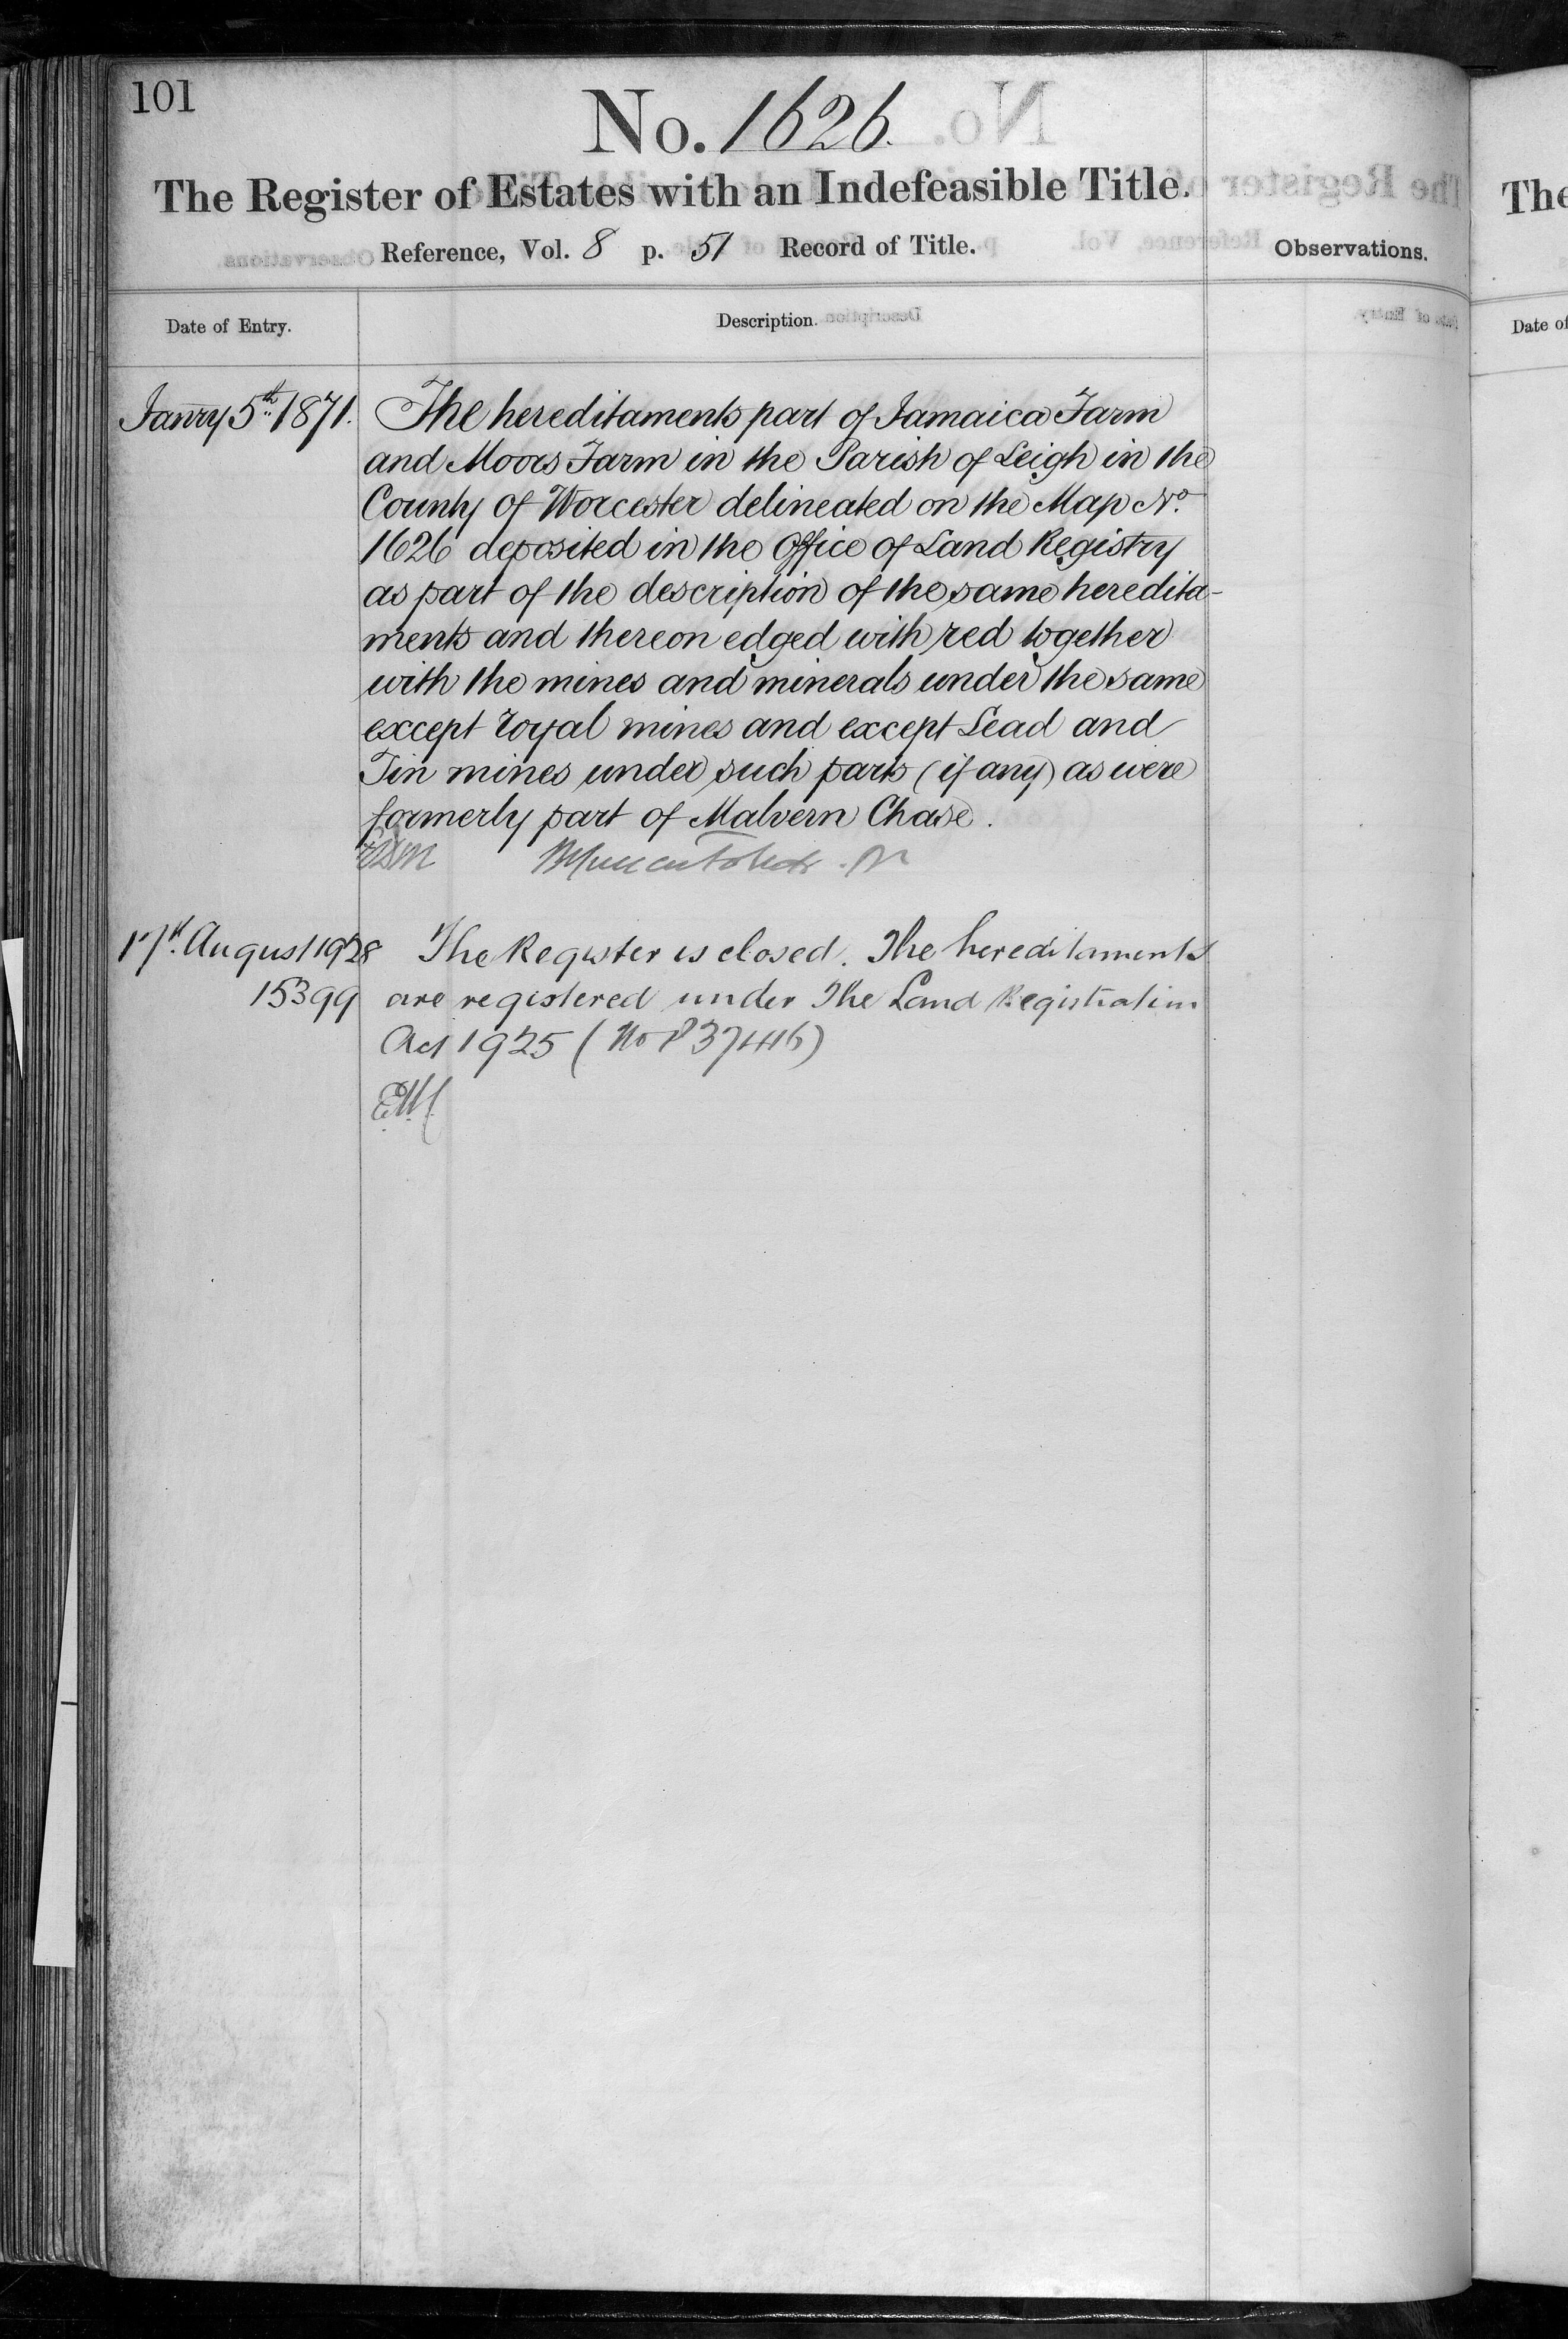 101
No. 1626.
The Register of Estates with an Indefeasible Title.
Reference, Vol. 8 p. 51 Record of Title.
Observations.
Date of Entry.
Description.
Janry 5th 1871.
The hereditaments part of Jamaica Farm
and Moors Farm in the Parish of Leigh in the
County of Worcester delineated on the Map No.
1626 deposited in the Office of Land Registry
as part of the description of the same heredita-
ments and thereon edged with red together
with the mines and minerals under the same
except royal mines and except Lead and
Tin mines under such parts (if any) as were
formerly part of Malvern Chase.
17th August 1928
15399
The Register is closed. The hereditaments
are registered under The Land Registration
Act 1925 (No P37446)
The
Date of